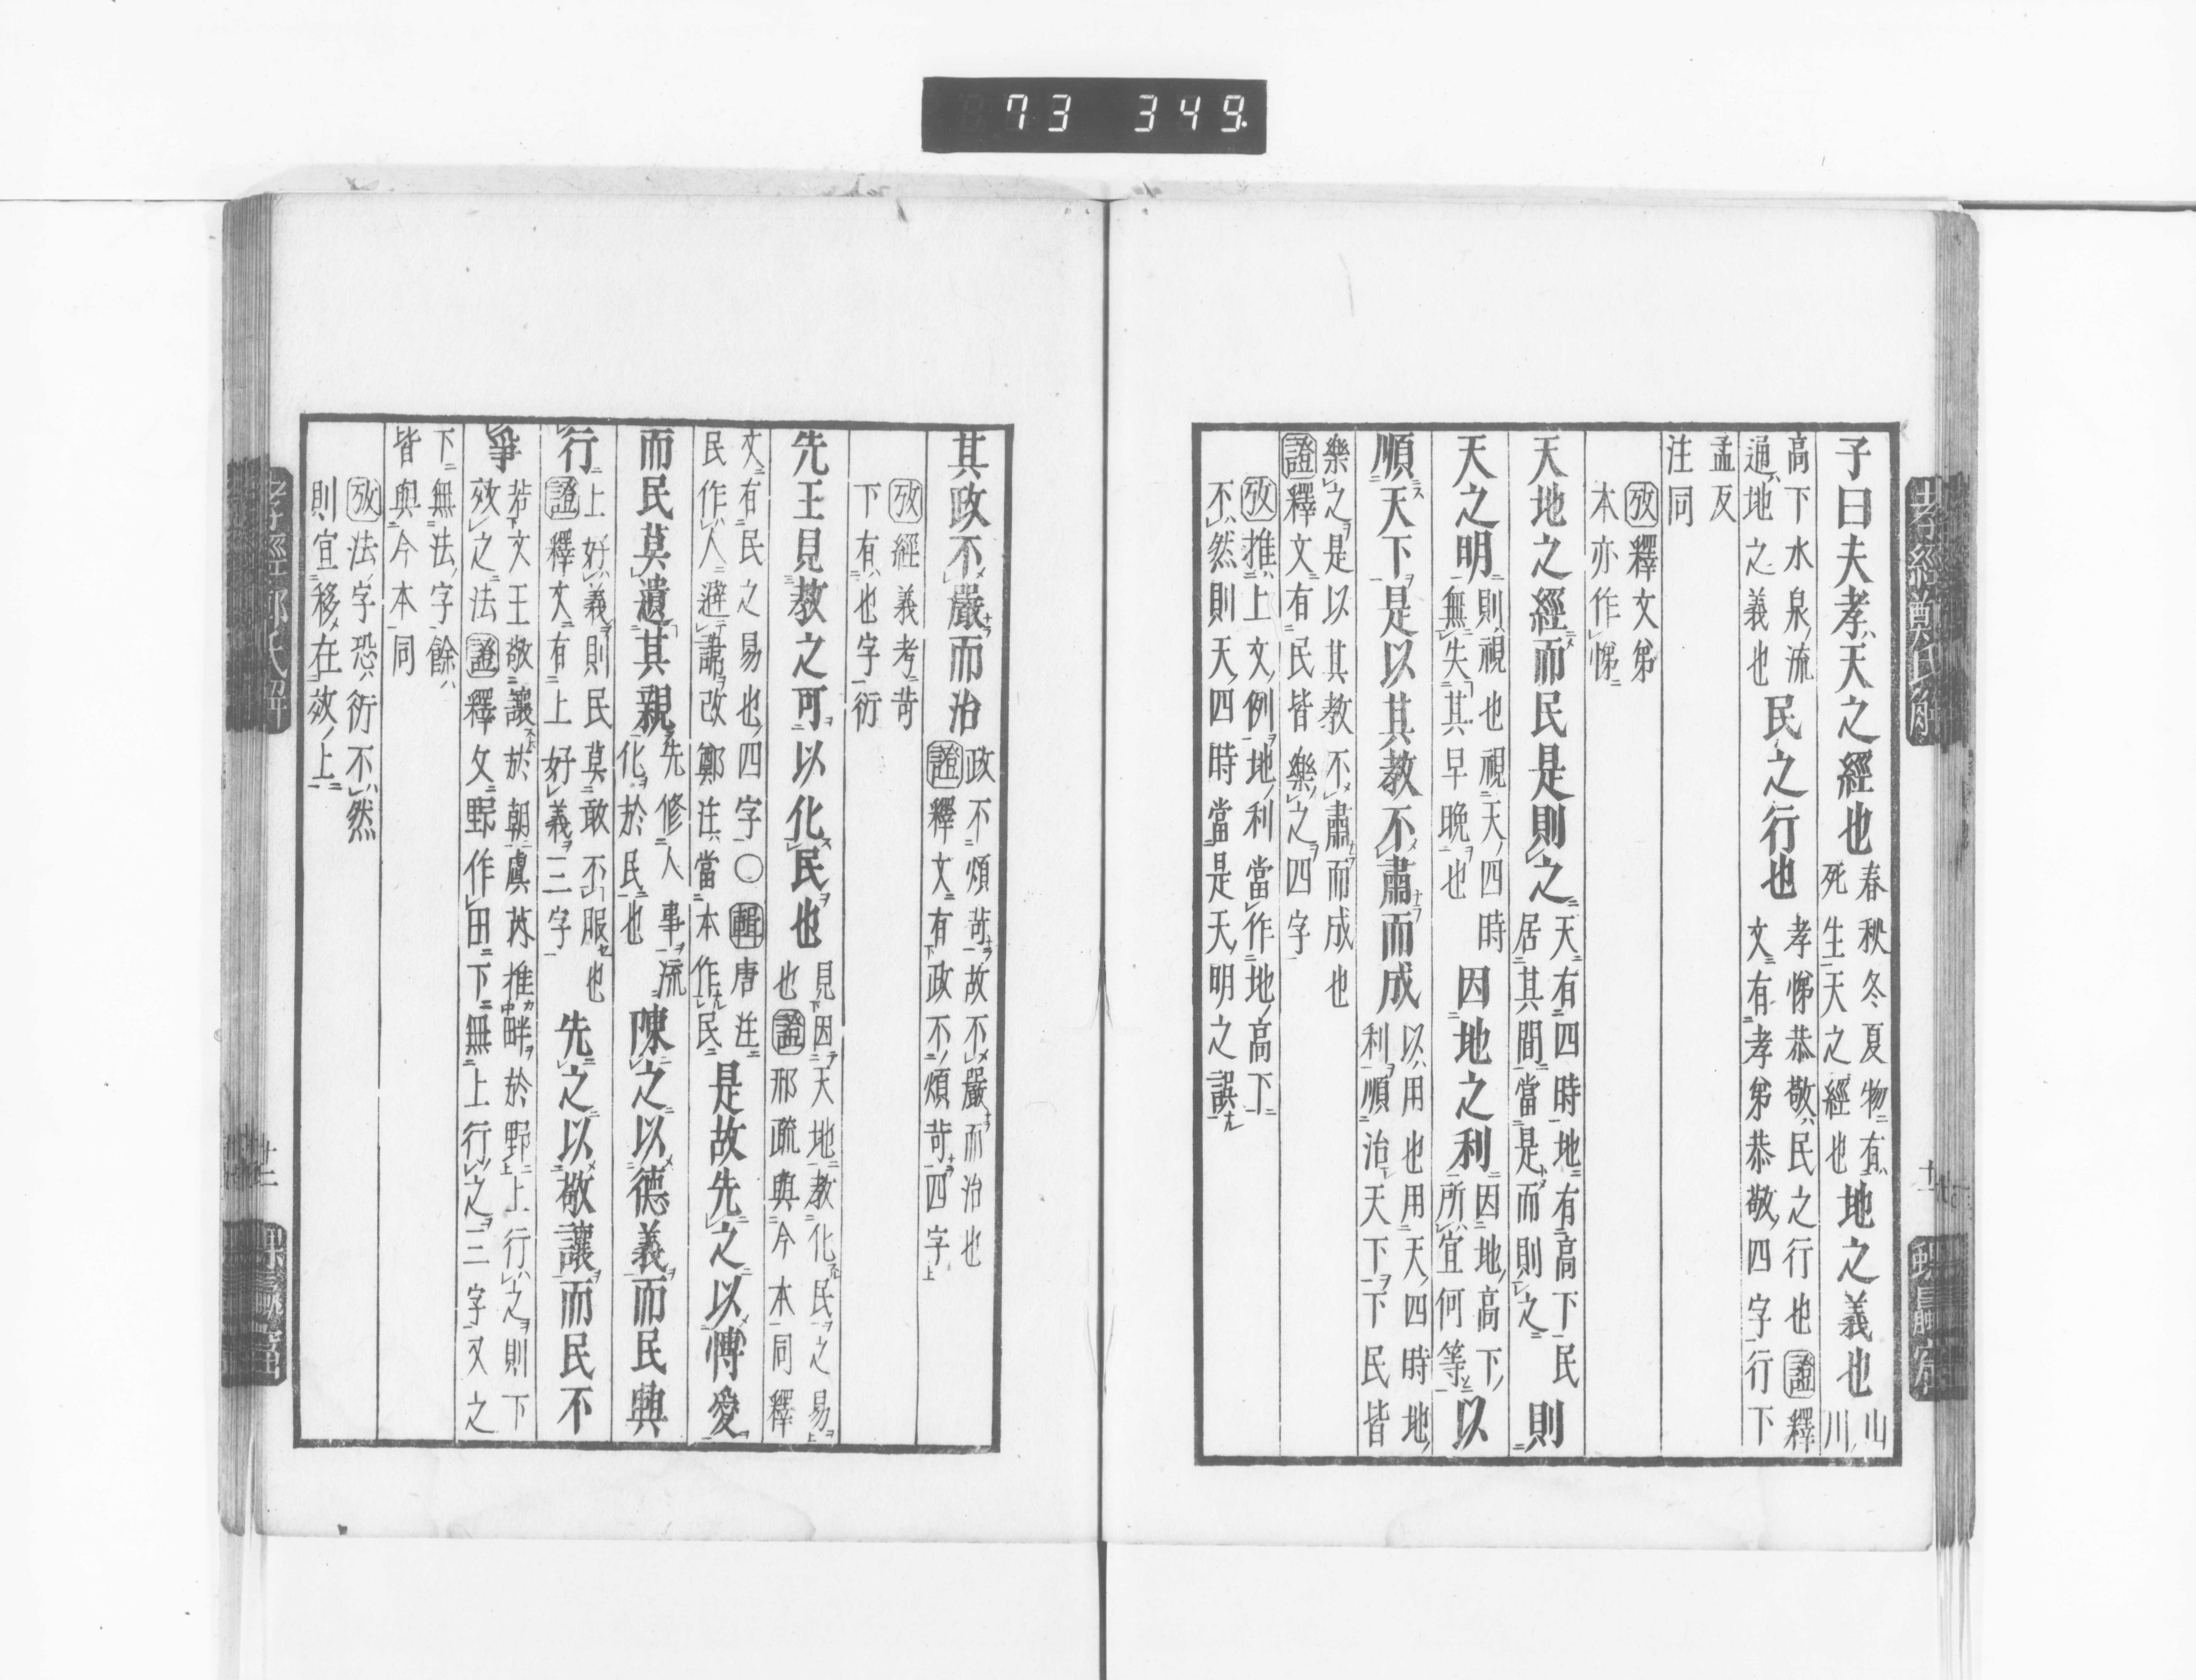 73 349
子曰夫孝天之經也春秋冬夏物有死生天之經也地之義也山川
高下水泉流通地之義也民之行也孝悌恭敬民之行也證釋文有孝弟恭敬四字行下
孟反注同
攷釋文弟本亦作悌
天地之經而民是則之天有四時地有高下民居其間當是而則之則
天之明則視也視天四時無失其早晩也因地之利因地高下所宜何等以
順天下是以其教不肅而成以用也用天四時地利順治天下下民皆
樂之是以其教不肅而成也證釋文有民皆樂之四字
攷推上文例地利當作地高下不然則天四時當是天明之誤
其政不嚴而治政不煩苛故不嚴而治也證釋文有政不煩苛四字
攷經義考苛下有也字衍
先王見教之可以化民也見因天地教化民之易也證邢疏與今本同釋
文有民之易也四字○輯唐注民作人避諱改鄭注當本作民是故先之以愽愛
而民莫遺其親先修人事流化於民也陳之以德義而民興
行上好義則民莫敢不服也證釋文有上好義三字先之以敬讓而民不
爭若文王敬讓於朝虞芮推畔於野上行之則下效之法證釋文野作田下無上行之三字又之
下無法字餘皆與今本同
攷法字恐衍不然則宜移在效上